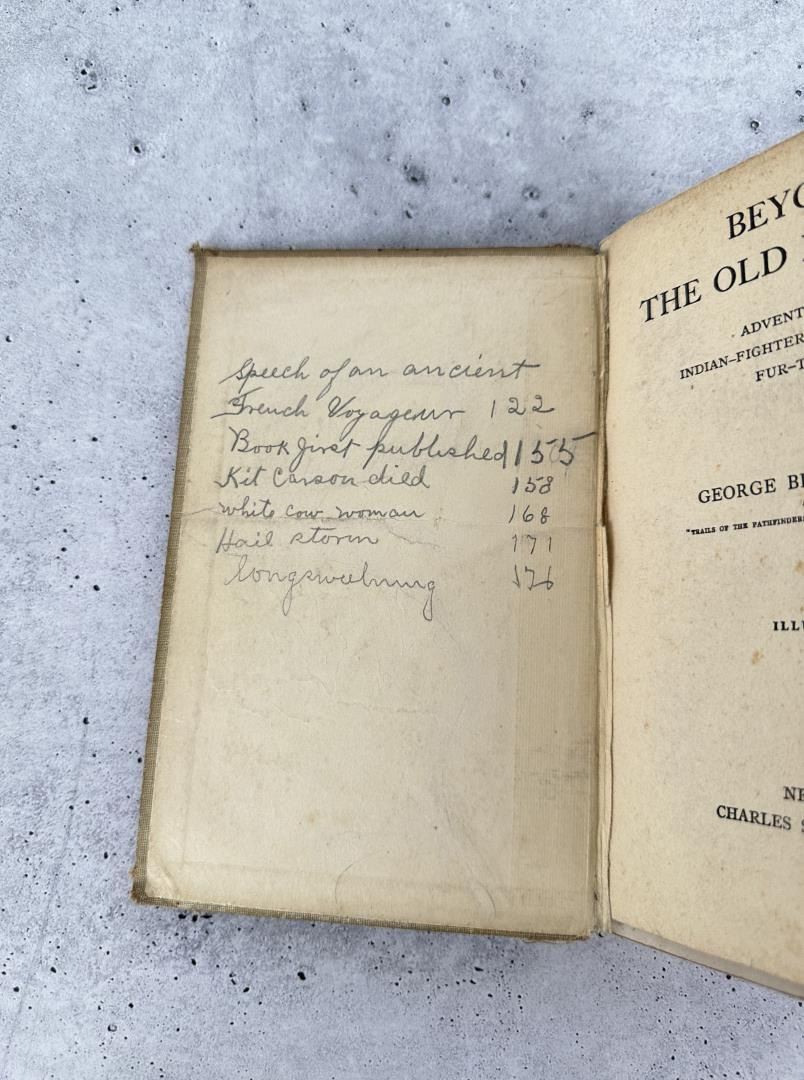 Speech of an ancient
French Voyageur 122
Book first published 155
Kit Carson died 158
white cow woman 168
Hail storm 171
176
BEYO
THE OLD
ADVENT
INDIAN-FIGHTER
FUR-T
GEORGE BI
"TRAILS OF THE PATHFINDERS
ILLU
NE
CHARLES S